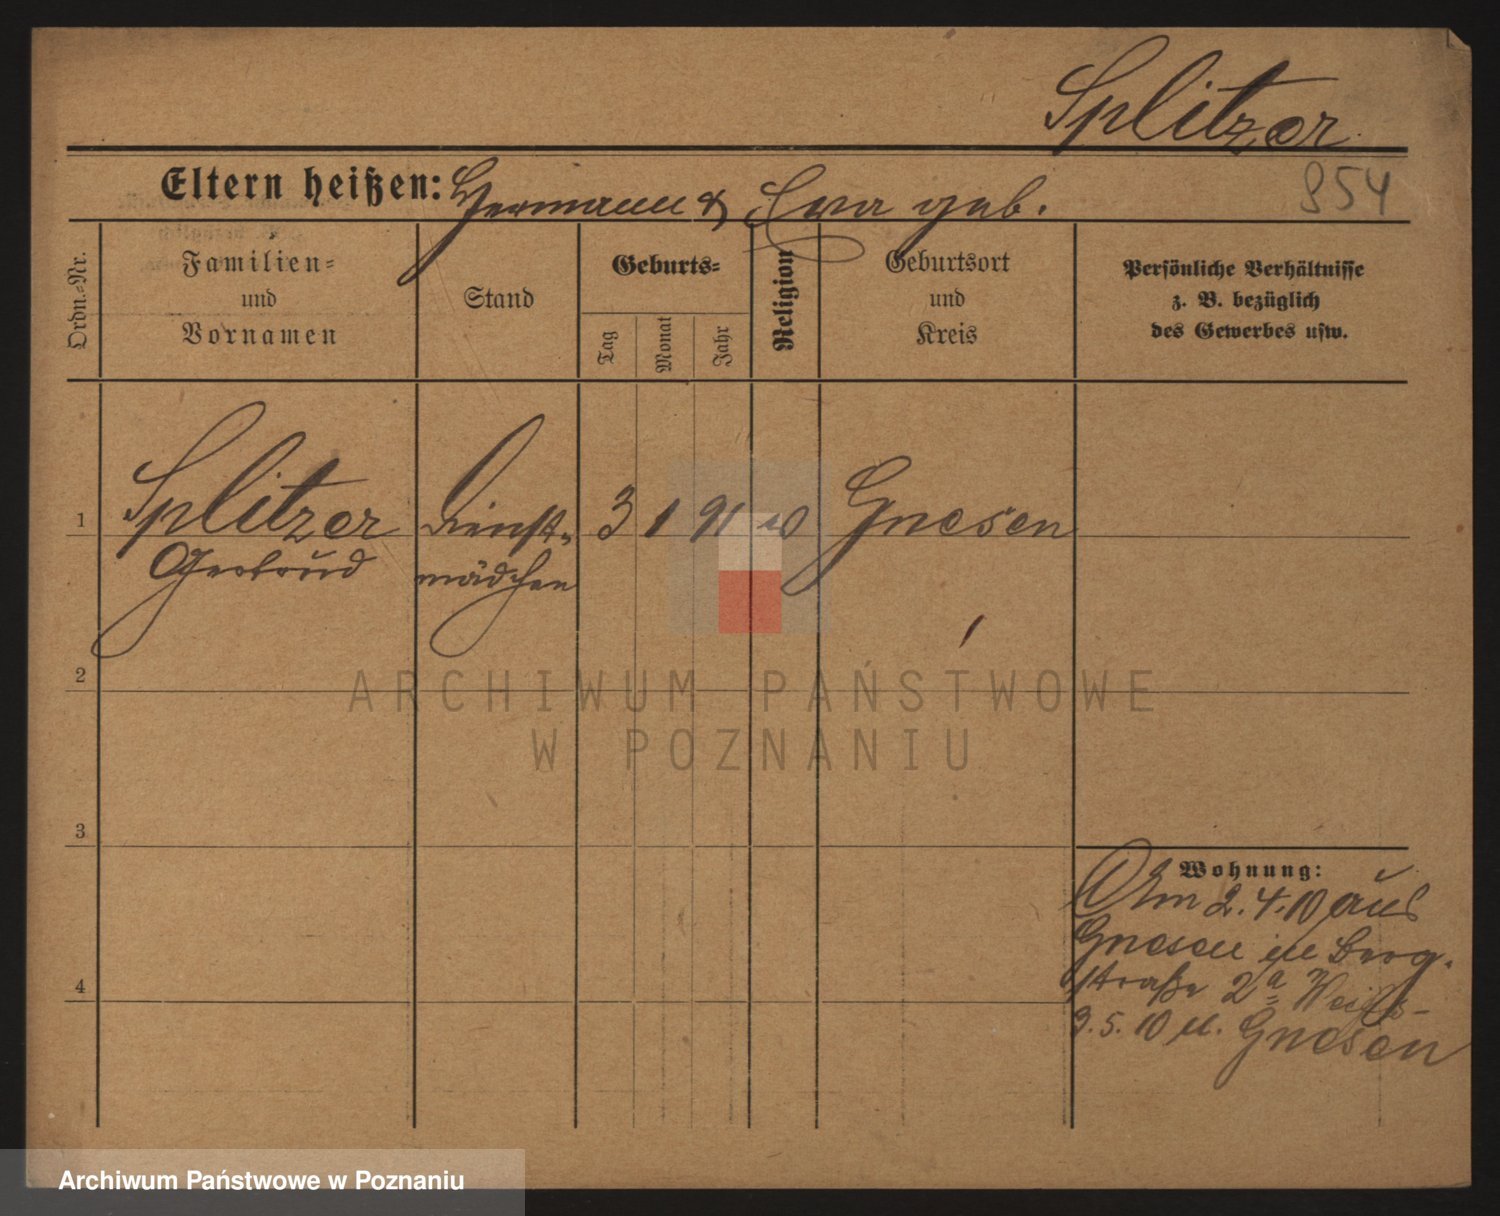 Splitzer
954
Eltern heißen: Hermann & Eva geb.
Ordn.-Nr.
Familien-
und
Vornamen
Stand
Geburts-
Tag
Monat
Jahr
Religion
Geburtsort
und
Kreis
Persönliche Verhältnisse
z. B. bezüglich
des Gewerbes usw.
1 Splitzer Dienst- 3 1 91 Gnesen
Gertrud mädchen
2
3
4
Wohnung:
Am 2.4.10 aus
Gnesen in Berg-
straße 2a
3.5.10 n. Gnesen
ARCHIWUM PAŃSTWOWE
W POZNANIU
Archiwum Państwowe w Poznaniu